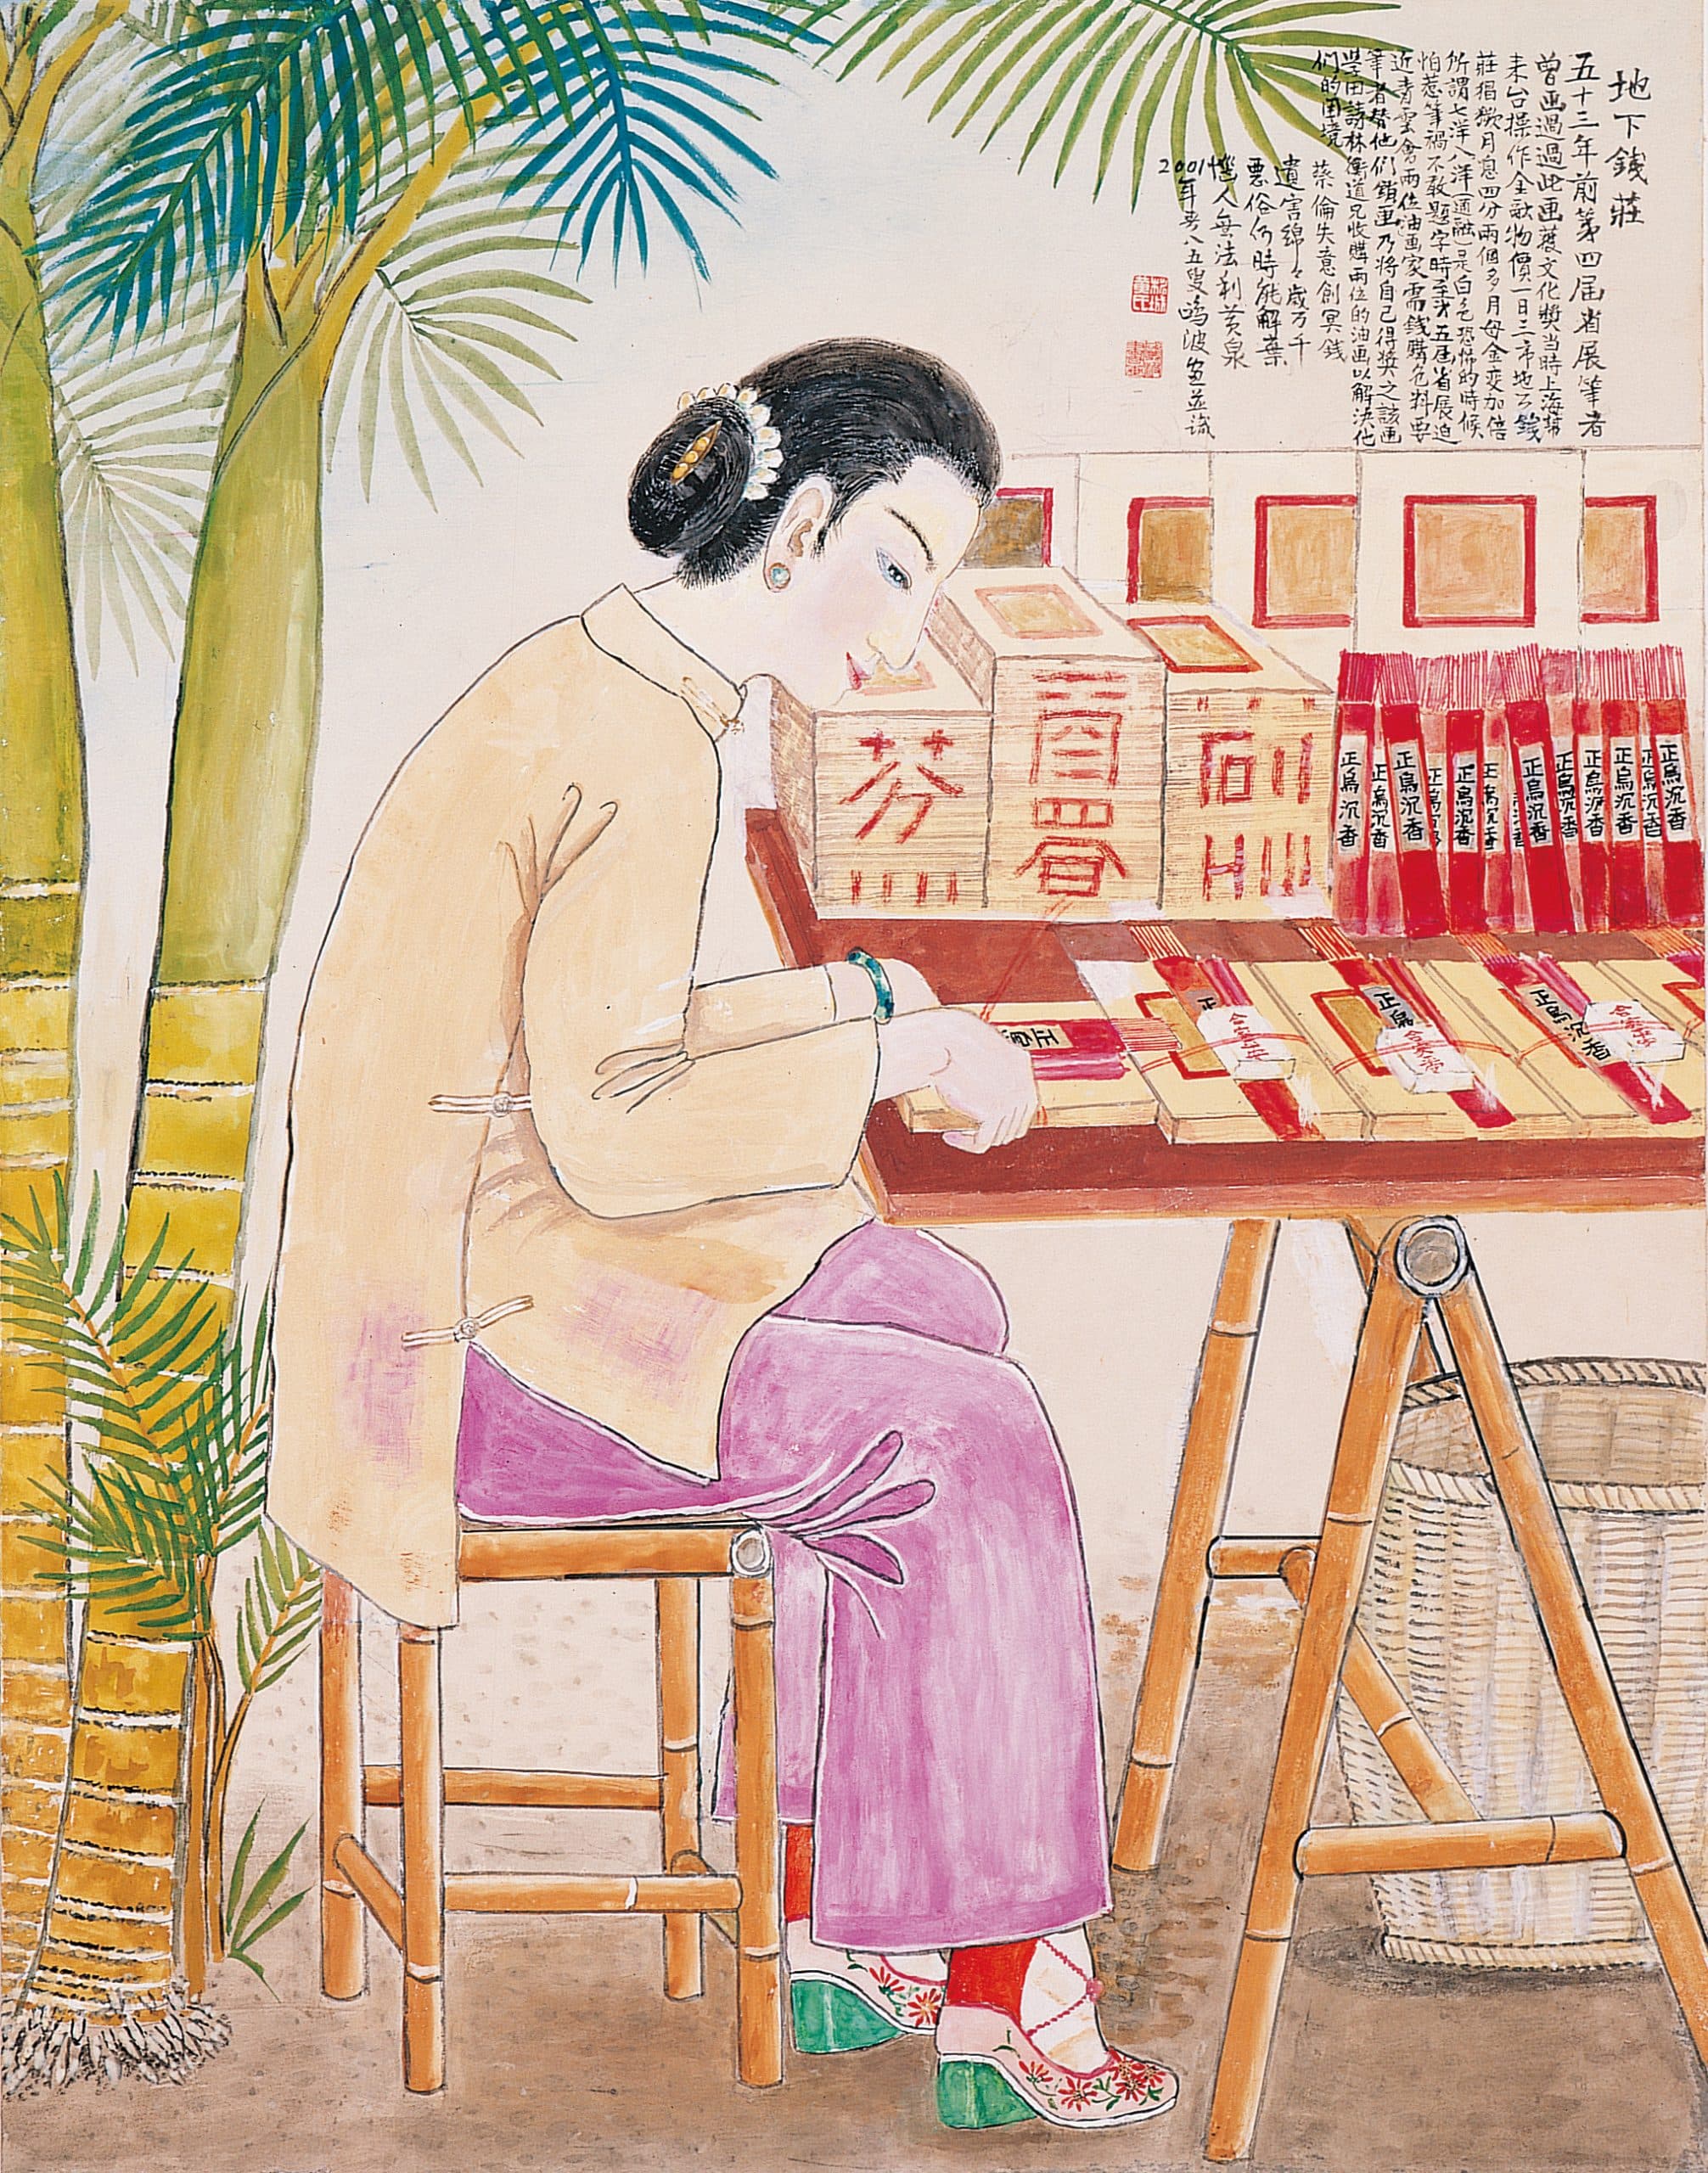 地下錢莊
五十三年前第四屆省展筆者
曾画過過此画獲文化獎当時上海幫
来台操作金融物價一日三市地下錢
莊猖獗月息四分兩個多月母金变加倍
所謂七洋八洋通融是白色恐怖的時候
怕惹筆禍不敢題字時至才五屆省展迫
近青雲會兩位油画家需錢購色料要
筆者替他們鎖画乃將自己得獎之該画
学田請林衡道兄收購兩位的油画以解決他
们的困境
蔡倫失意創冥錢
遺害綿々歲万千
悪俗何時能解棄
惱人無法利黃泉
2001年 八五叟鳴波画並識
芬
正烏沉香
正烏沉香
正烏沉香
正烏沉香
正烏沉香
正烏沉香
正烏沉香
正烏沉香
正烏沉香
正烏
正烏沉香